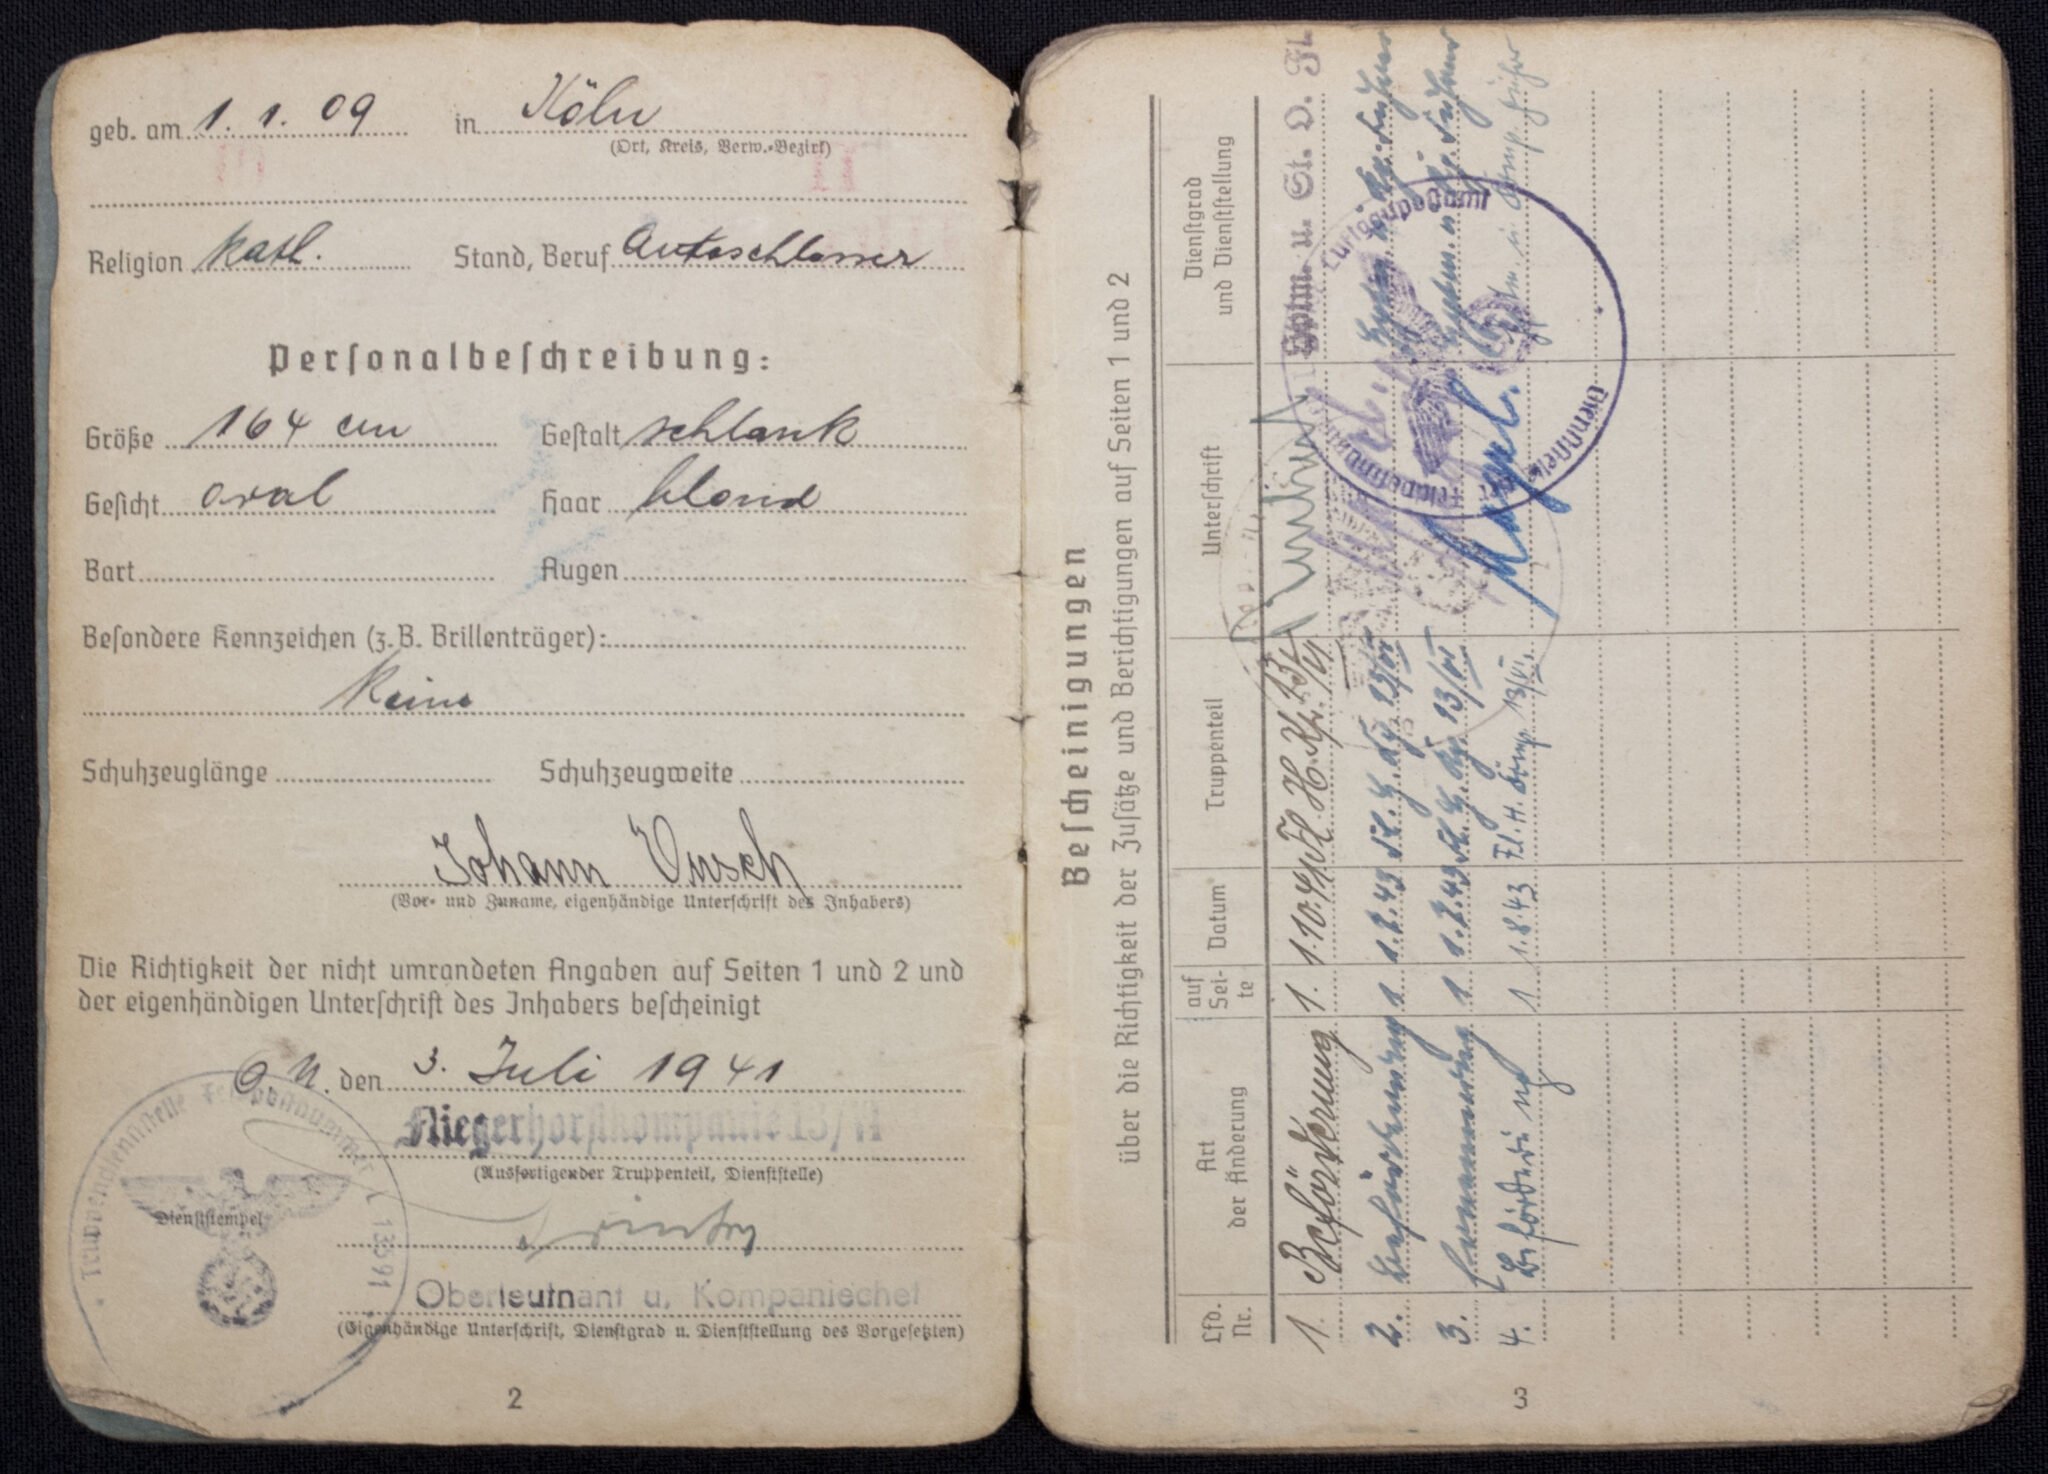 geb. am 1. 1. 09 in Köln
(Ort, Kreis, Verw.-Bezirk)
Religion kath. Stand, Beruf Autoschlosser
Personalbeschreibung:
Größe 164 cm Gestalt schlank
Gesicht oval Haar blond
Bart Augen
Besondere Kennzeichen (z.B. Brillenträger):
Keine
Schuhzeuglänge Schuhzeugweite
Johann
(Vor- und Zuname, eigenhändige Unterschrift des Inhabers)
Die Richtigkeit der nicht umrandeten Angaben auf Seiten 1 und 2 und
der eigenhändigen Unterschrift des Inhabers bescheinigt
O.U. den 3. Juli 1941
Fliegerhorstkompanie 13/VI
(Ausfertigender Truppenteil, Dienststelle)
Truppendienststelle Feldpostnummer L 13591
Dienststempel
Oberleutnant u. Kompaniechef
(Eigenhändige Unterschrift, Dienstgrad u. Dienststellung des Vorgesetzten)
2
Bescheinigungen
über die Richtigkeit der Zusätze und Berichtigungen auf Seiten 1 und 2
Lfd. Nr. Art der Änderung auf Sei-te Datum Truppenteil Unterschrift Dienstgrad und Dienststellung
1. Beförderung 1. 1.10.41 Fl. H. Kp. 13/VI Hptm. u. St. O. Fl
2. Beförderung 1 Fl. H. Kp.
3. 1 Fl. H. Kp. 13/VI
4. Beförderung 1 1.8.43 Fl. H. Komp. 13/VI.
Dienststelle Feldpostnummer
Luftgaupostamt
3